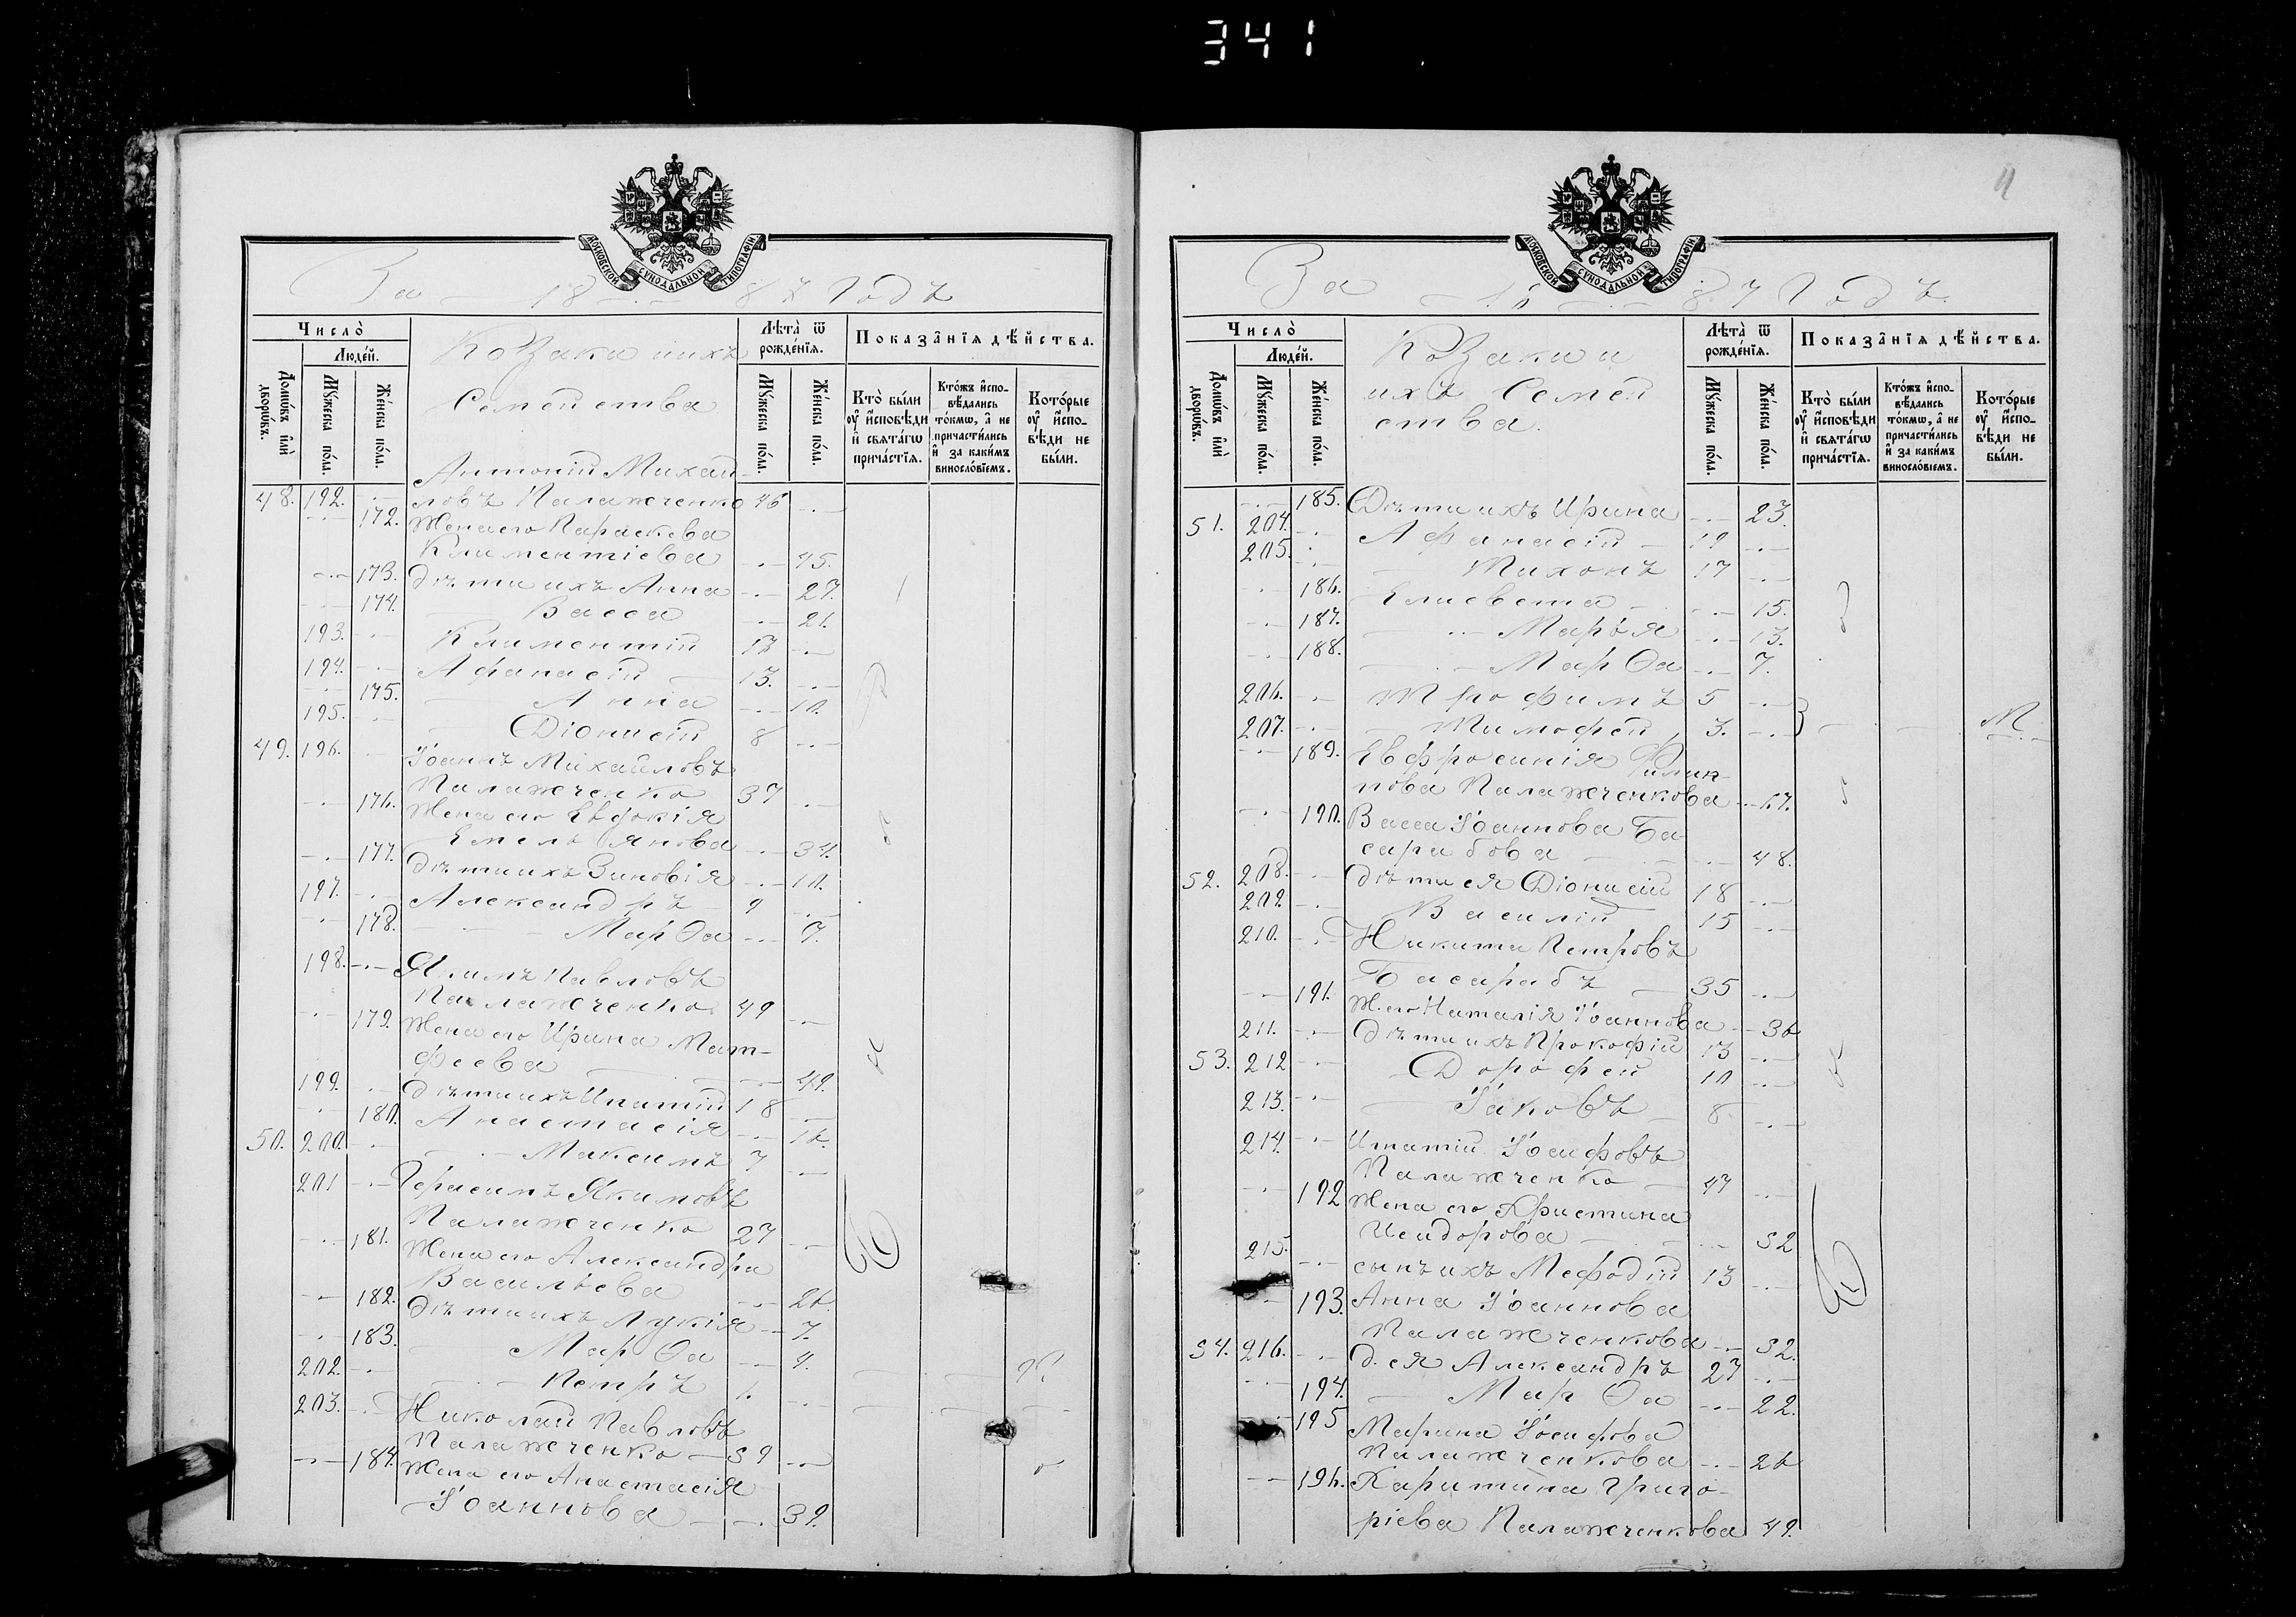 341
МОСКОВСКОЙ СУНОДАЛЬНОЙ ТИПОГРАФІИ
За 1887 Годъ
Число̀
Людє́й.
Домѡ́въ и҆лѝ дворѡ́въ.
Мꙋ́жеска по́ла.
Же́нска по́ла.
Козаки и ихъ
Семейства
Лѣта̀ ѿ рожде́нїѧ.
Мꙋ́жеска по́ла.
Же́нска по́ла.
Показа̂нїѧ дѣ́йства.
Кто̀ бы́ли ᲂу҆ и҆сповѣ́ди и҆ свѧта́гѡ прича́стїѧ.
Кто́жъ и҆сповѣ́дались то́кмѡ, а҆ не причасти́лись и҆ за каки́мъ виносло́вїемъ.
Кото́рые ᲂу҆ и҆сповѣ́ди не бы́ли.
Антоній Михай-
48. 192. ловъ Палажченко 46
172. Жена его Параскева
Климентіева 45.
173. дѣти ихъ Анна 27.
174. Васса 21.
193. Климентій 17
194. Афанасій 13.
175. Анна 10.
195. Діонисій 8
49. 196. Іоаннъ Михайловъ
Палажченко 37
176. Жена его Евдокія
Емельянова 34.
177. дѣти ихъ Зиновія 10.
197. Александръ 9
178. Марѳа 7.
198. Якимъ Павловъ
Палажченко 49
179. Жена его Ирина Мат-
феева 49.
199. дѣти ихъ Ипатій 18
180. Анастасія 16.
50. 200. Максимъ 7
201 Герасимъ Якимовъ
Палажченко 27
181. Жена его Александра
Васильева 26.
182. дѣти ихъ Лукія 7.
183. Марѳа 4.
202. Петръ 1.
203. Николай Павловъ
Палажченко 39
184. Жена его Анастасія
Іоаннова 39.
4
МОСКОВСКОЙ СУНОДАЛЬНОЙ ТИПОГРАФІИ
За 1887 Годъ.
Число̀
Людє́й.
Домѡ́въ и҆лѝ дворѡ́въ.
Мꙋ́жеска по́ла.
Же́нска по́ла.
Козаки и
ихъ Семей
ства.
Лѣта̀ ѿ рожде́нїѧ.
Мꙋ́жеска по́ла.
Же́нска по́ла.
Показа̂нїѧ дѣ́йства.
Кто̀ бы́ли ᲂу҆ и҆сповѣ́ди и҆ свѧта́гѡ прича́стїѧ.
Кто́жъ и҆сповѣ́дались то́кмѡ, а҆ не причасти́лись и҆ за каки́мъ виносло́вїемъ.
Кото́рые ᲂу҆ и҆сповѣ́ди не бы́ли.
185. Дѣти ихъ Ирина 23.
51. 204. Афанасій 19
205. Тихонъ 17
186. Елисвета 15.
187. Марья 13.
188. Марѳа 7.
206. Трофимъ 5
207. Тимофей 3. М.
189. Евфросинія Филип-
пова Палажченкова 67.
190. Васса Іоаннова Ба-
сарабова 48.
52. 208. дѣти ея Діонисій 18
209. Василій 15
210. Никита Петровъ
Басарабъ 35
191. Ж. его Наталія Іоаннова 36
211. дѣти ихъ Прокофій 13
53. 212 Дорофей 10
213. Іаковъ 8
214. Игнатій Іосифовъ
Палажченко 47
192 Жена его Христина
Исидорова 52
215. сынъ ихъ Мефодій 13
193. Анна Іоаннова
Палажченкова 52.
54. 216. д. ея Александръ 27
194. Марѳа 22.
195 Марина Іосифова
Палажченкова 26
196. Харитина Григо-
ріева Палажченкова 49.